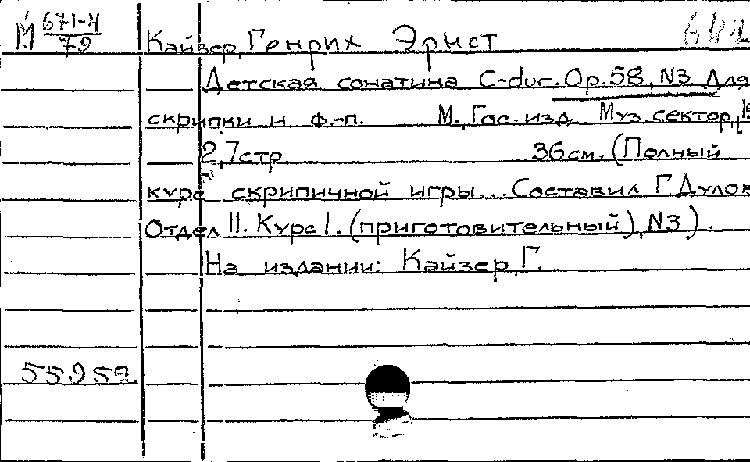 М 671-4
79
Кайзер, Генрих Эрнст
Детская сонатина C-dur. Op.58, N3 Для
скрипки и ф.-п. М., Гос. изд. Муз. сектор,
2,7стр. 36см. (Полный
курс скрипичной игры... Составил Г. Дулов
Отдел II. Курс I. (приготовительный), N3).
На издании: Кайзер, Г.